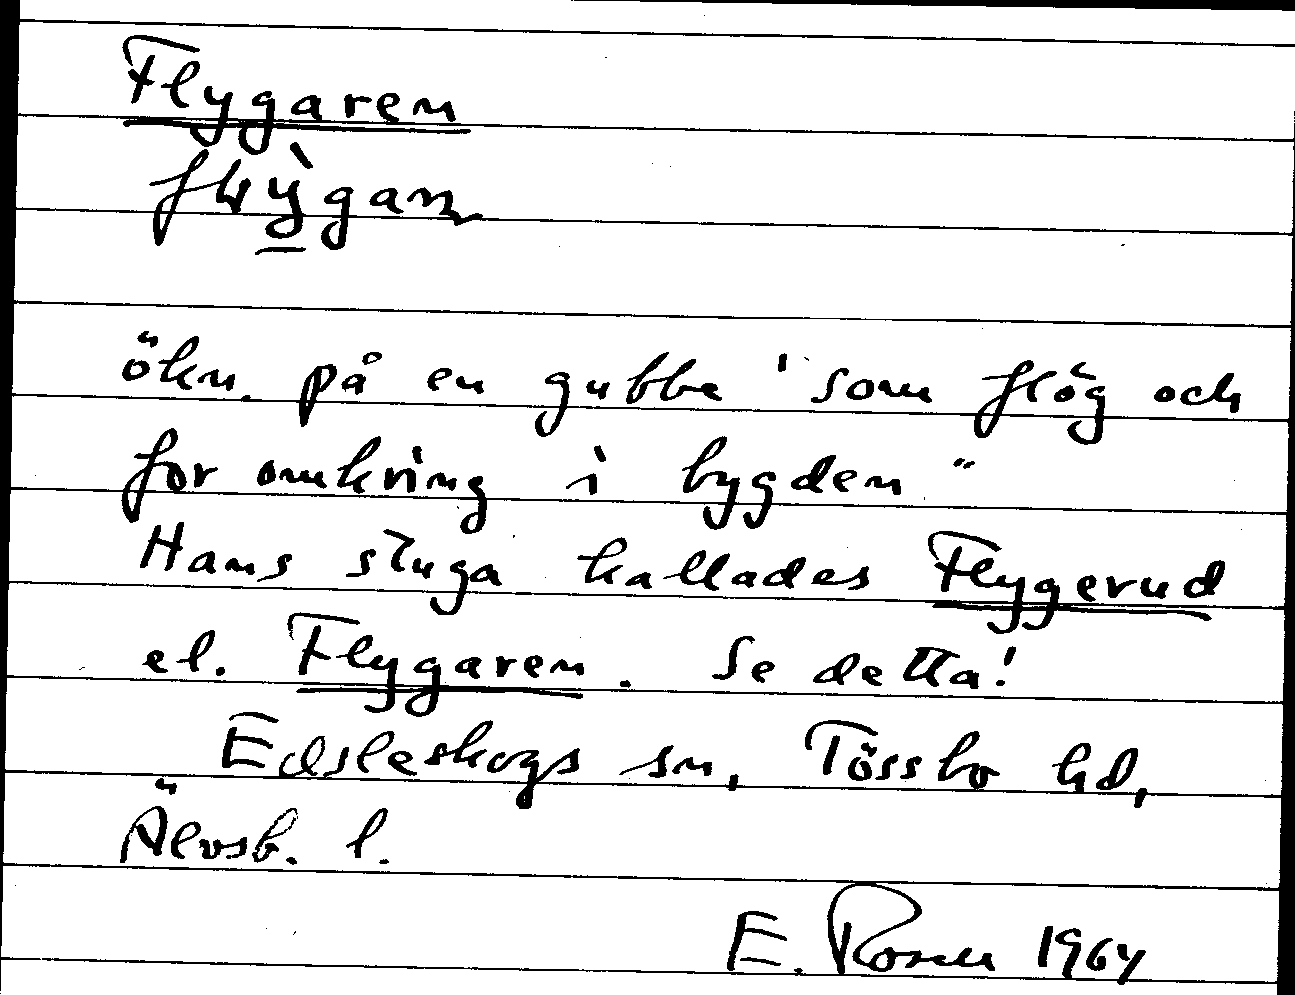 Flygaren
ökn. på en gubbe 'som flög och
for omkring i bygden"
Hans stuga kallades Flygerud
el. Flygaren. Se detta!
Edsleskogs sn, Tössbo hd,
Älvsb. l.
E. Rosell 1964